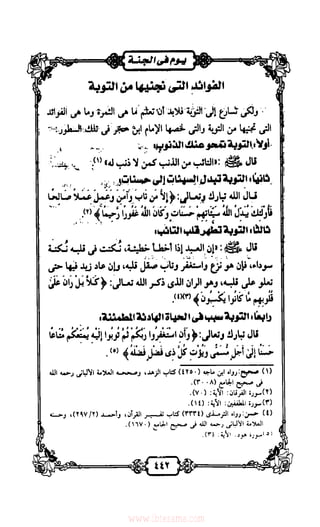 يـوم فى الجنـة
الفوائد التى نجنيها من التوبة
ولكى نسارع إلى التوبة فلابد أن نعلم ما هى الثمرة وما هى الفوائد
التى نجنيها من التوبة والتى لخصها الإمام ابن حجر فى تلك السطور:
أولاً: التوبة تمحو عنك الذنوب:
قال ﷺ: «التائب من الذنب كمن لا ذنب له» (١).
ثانيًا: التوبة تبدل السيئات إلى حسنات:
قـال الله تبارك وتعـالى: ﴿إِلاَّ مَن تَابَ وَآمَنَ وَعَمِلَ عَمَلاً صَالِحًا
فَأُوْلَئِكَ يُبَدِّلُ اللَّهُ سَيِّئَاتِهِمْ حَسَنَاتٍ وَكَانَ اللَّهُ غَفُورًا رَّحِيمًا﴾ (٢).
ثالثًا: التوبة تطهر قلب التائب:
قال ﷺ: «إن العـبد إذا أخطـأ خطيـئة، نُكتـت فى قلبـه نُكتـة
سوداء، فإن هو نزع واستغفر وتاب صقل قلبه، وإن عاد زيد فيها حتى
تعلو على قلبـه، وهو الران الذى ذكـر الله تعـالى: ﴿كَلاَّ بَلْ رَانَ عَلَىٰ
قُلُوبِهِم مَّا كَانُوا يَكْسِبُونَ﴾» (٣)(٤).
رابعًا: التوبة سبب فى الحياة الهادئة المطمئنة:
قال تبارك وتعالى: ﴿وَأَنِ اسْتَغْفِرُوا رَبَّكُمْ ثُمَّ تُوبُوا إِلَيْهِ يُمَتِّعْكُم مَّتَاعًا
حَسَنًا إِلَىٰ أَجَلٍ مُّسَمًّى وَيُؤْتِ كُلَّ ذِي فَضْلٍ فَضْلَهُ﴾ (٥).
(١) صحيح: رواه ابن ماجه (٤٢٥٠) كتاب الزهد، وصححـه العلامة الألبانى رحمه الله
فى صحيح الجامع (٣٠٠٨).
(٢) سورة الفرقان: الآية: (٧٠).
(٣) سورة المطففين: الآية: (١٤).
(٤) حسن: رواه الترمـذى (٣٣٣٤) كتاب تفسـير القرآن، وأحمـد (٢/٢٩٧)، وحسنه
العلامة الألبانى رحمه الله فى صحيح الجامع (١٦٧٠).
(٥) سورة هود: الآية: (٣).
٤٤٢